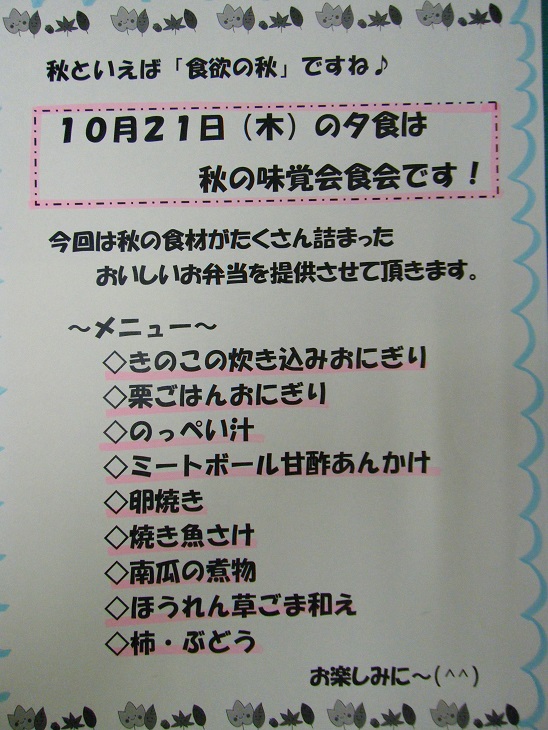 秋といえば「食欲の秋」ですね♪
１０月２１日（木）の夕食は
秋の味覚会食会です！
今回は秋の食材がたくさん詰まった
おいしいお弁当を提供させて頂きます。
～メニュー～
◇きのこの炊き込みおにぎり
◇栗ごはんおにぎり
◇のっぺい汁
◇ミートボール甘酢あんかけ
◇卵焼き
◇焼き魚さけ
◇南瓜の煮物
◇ほうれん草ごま和え
◇柿・ぶどう
お楽しみに～(^^)